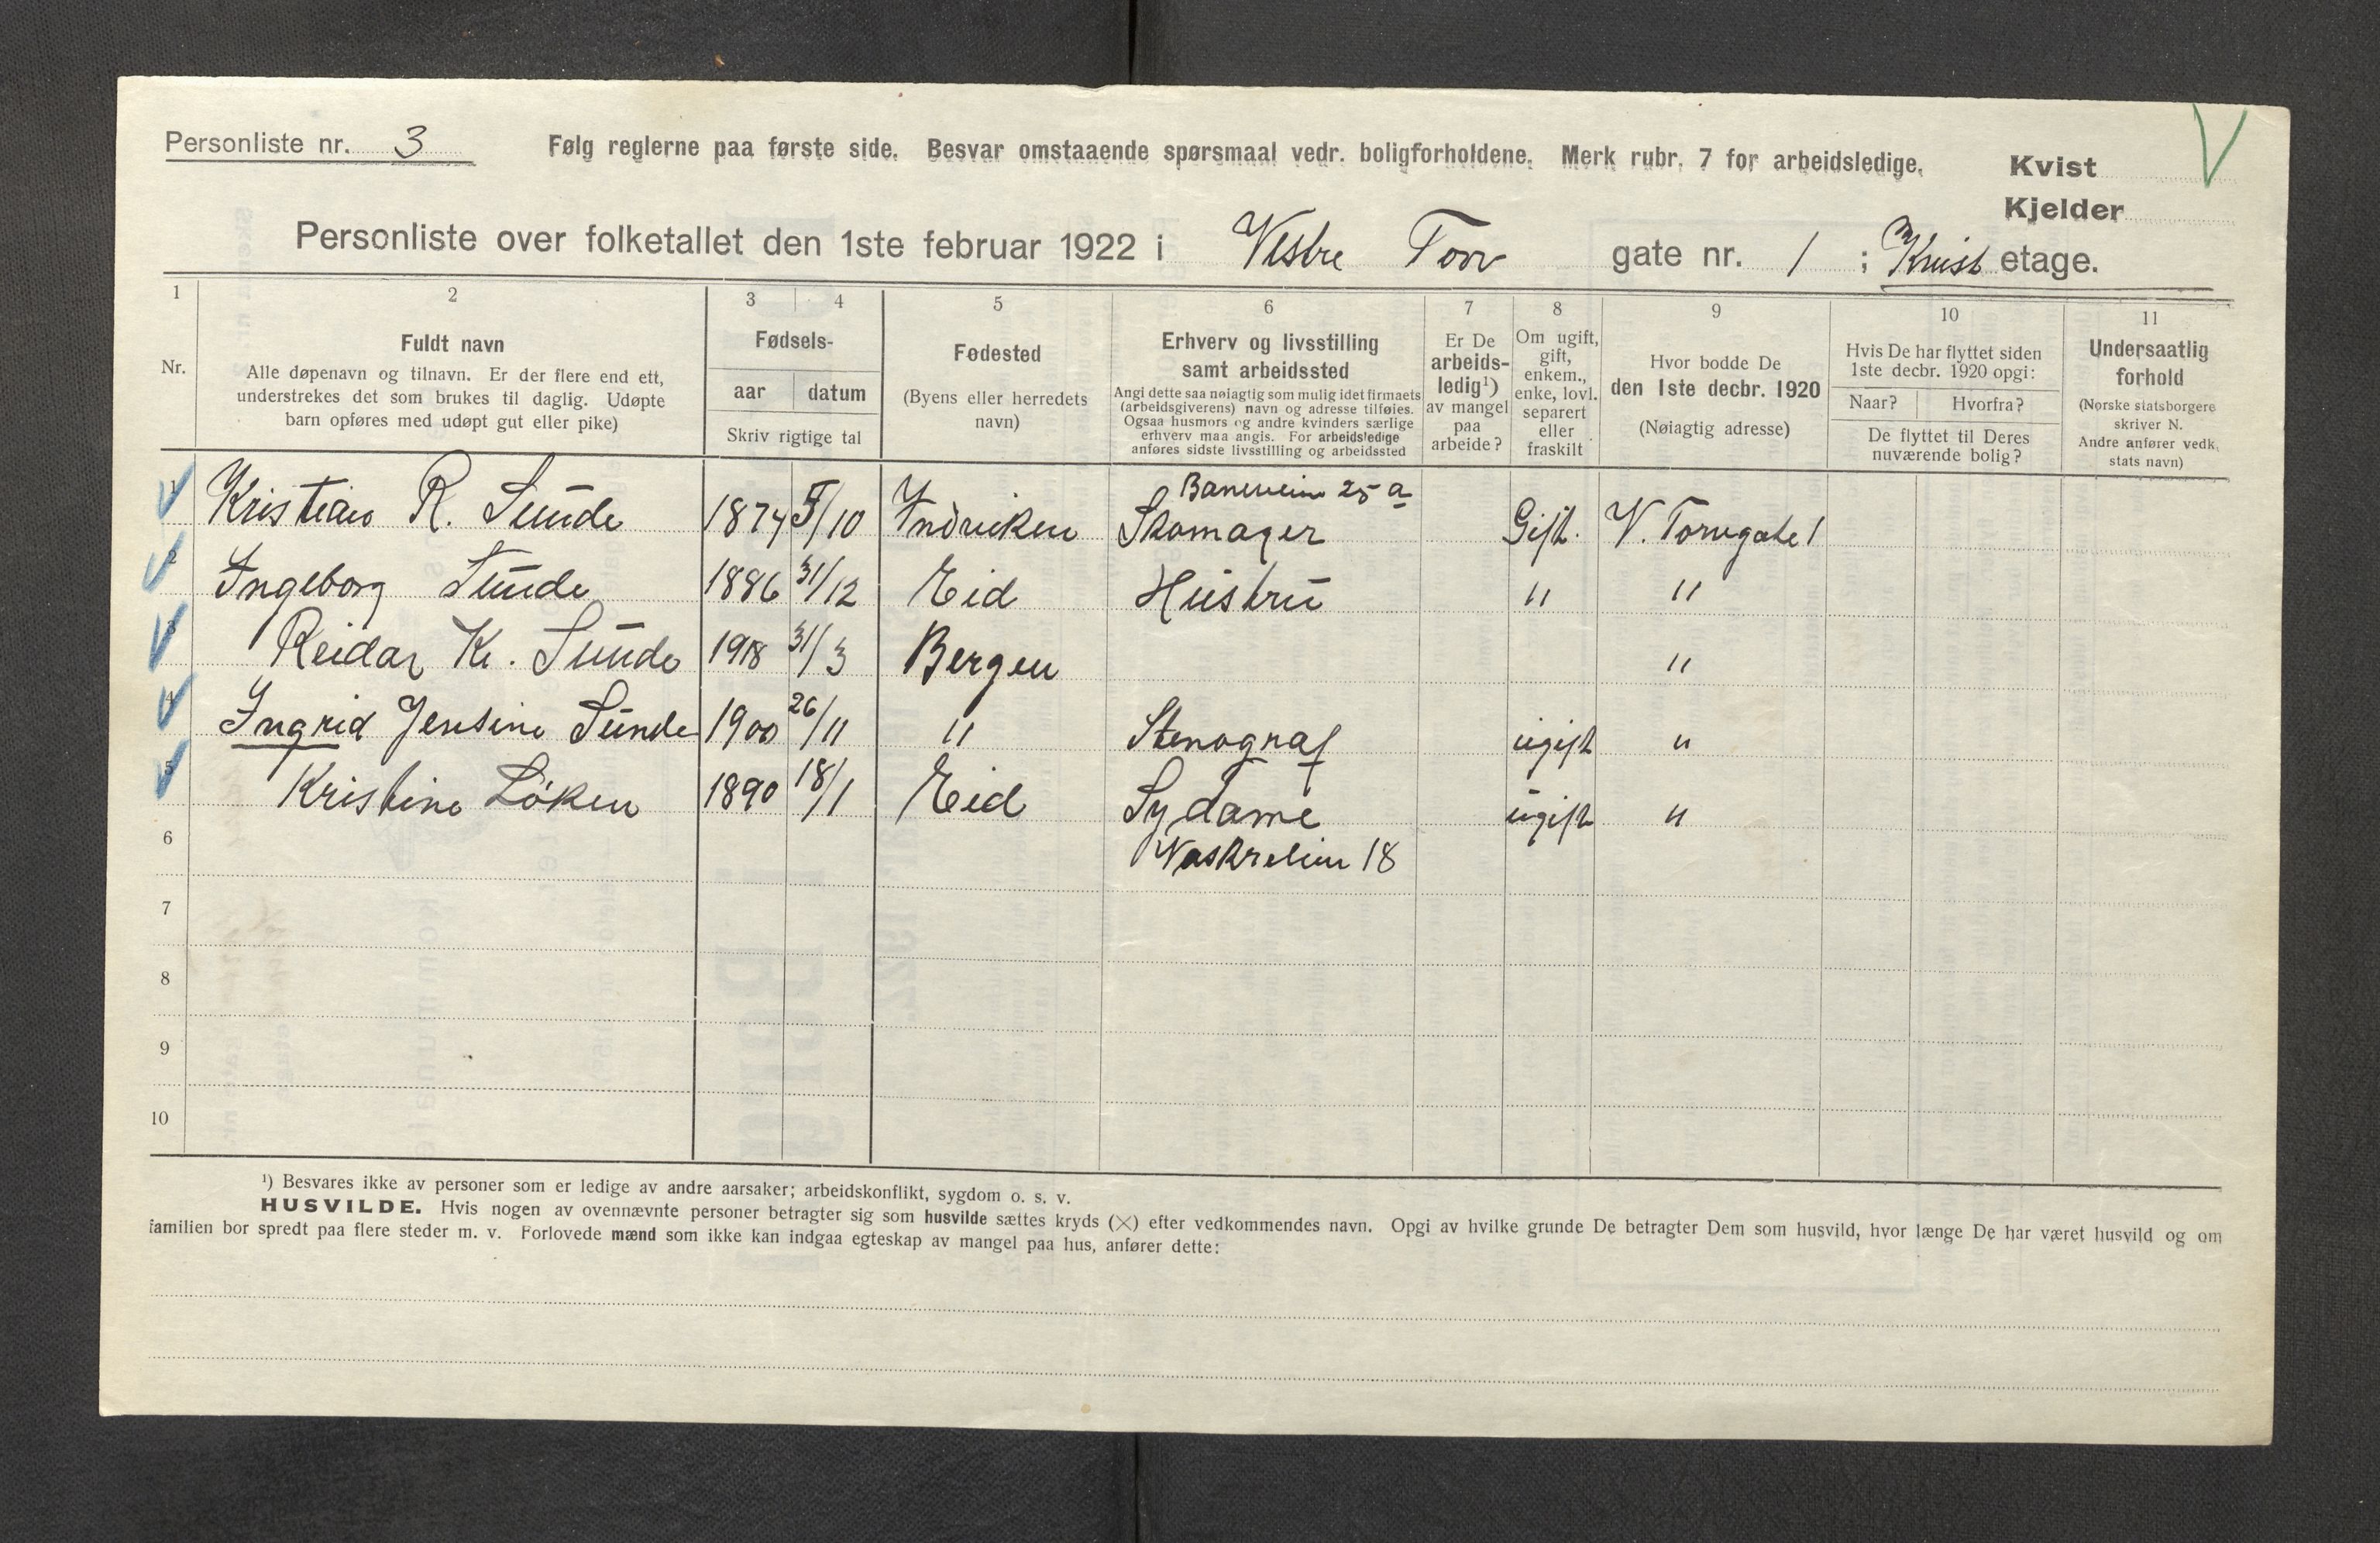 Personliste nr. 3
Følg reglerne paa første side. Besvar omstaaende spørsmaal vedr. boligforholdene. Merk rubr. 7 for arbeidsledige.
Kvist
Kjelder
Personliste over folketallet den 1ste februar 1922 i Vestre Torv gate nr. 1 ; Kvist etage.
1 2 3 4 5 6 7 8 9 10 11
Nr.
Fuldt navn
Alle døpenavn og tilnavn. Er der flere end ett,
understrekes det som brukes til daglig. Udøpte
barn opføres med udøpt gut eller pike)
Fødsels-
aar datum
Skriv rigtige tal
Fødested
(Byens eller herredets
navn)
Erhverv og livsstilling
samt arbeidssted
Angi dette saa nøiagtig som mulig idet firmaets
(arbeidsgiverens) navn og adresse tilføies.
Ogsaa husmors og andre kvinders særlige
erhverv maa angis. For arbeidsledige
anføres sidste livsstilling og arbeidssted
Er De
arbeids-
ledig¹)
av mangel
paa
arbeide?
Om ugift,
gift,
enkem.,
enke, lovl.
separert
eller
fraskilt
Hvor bodde De
den 1ste decbr. 1920
(Nøiagtig adresse)
Hvis De har flyttet siden
1ste decbr. 1920 opgi:
Naar? Hvorfra?
De flyttet til Deres
nuværende bolig?
Undersaatlig
forhold
(Norske statsborgere
skriver N.
Andre anfører vedk.
stats navn)
Baneveien 25 a
1 Kristian R. Sunde 1874 5/10 Indviken Skomager Gift. V. Torvgate 1
2 Ingeborg Sunde 1886 31/12 Eid Hustru " "
3 Reidar Kr. Sunde 1918 31/3 Bergen "
4 Ingrid Jensine Sunde 1900 26/11 " Stenograf ugift "
5 Kristine Löken 1890 18/1 Eid Sydame ugift "
6 18
7
8
9
10
¹) Besvares ikke av personer som er ledige av andre aarsaker; arbeidskonflikt, sygdom o. s. v.
HUSVILDE. Hvis nogen av ovennævnte personer betragter sig som husvilde sættes kryds (×) efter vedkommendes navn. Opgi av hvilke grunde De betragter Dem som husvild, hvor længe De har været husvild og om
familien bor spredt paa flere steder m. v. Forlovede mænd som ikke kan indgaa egteskap av mangel paa hus, anfører dette: